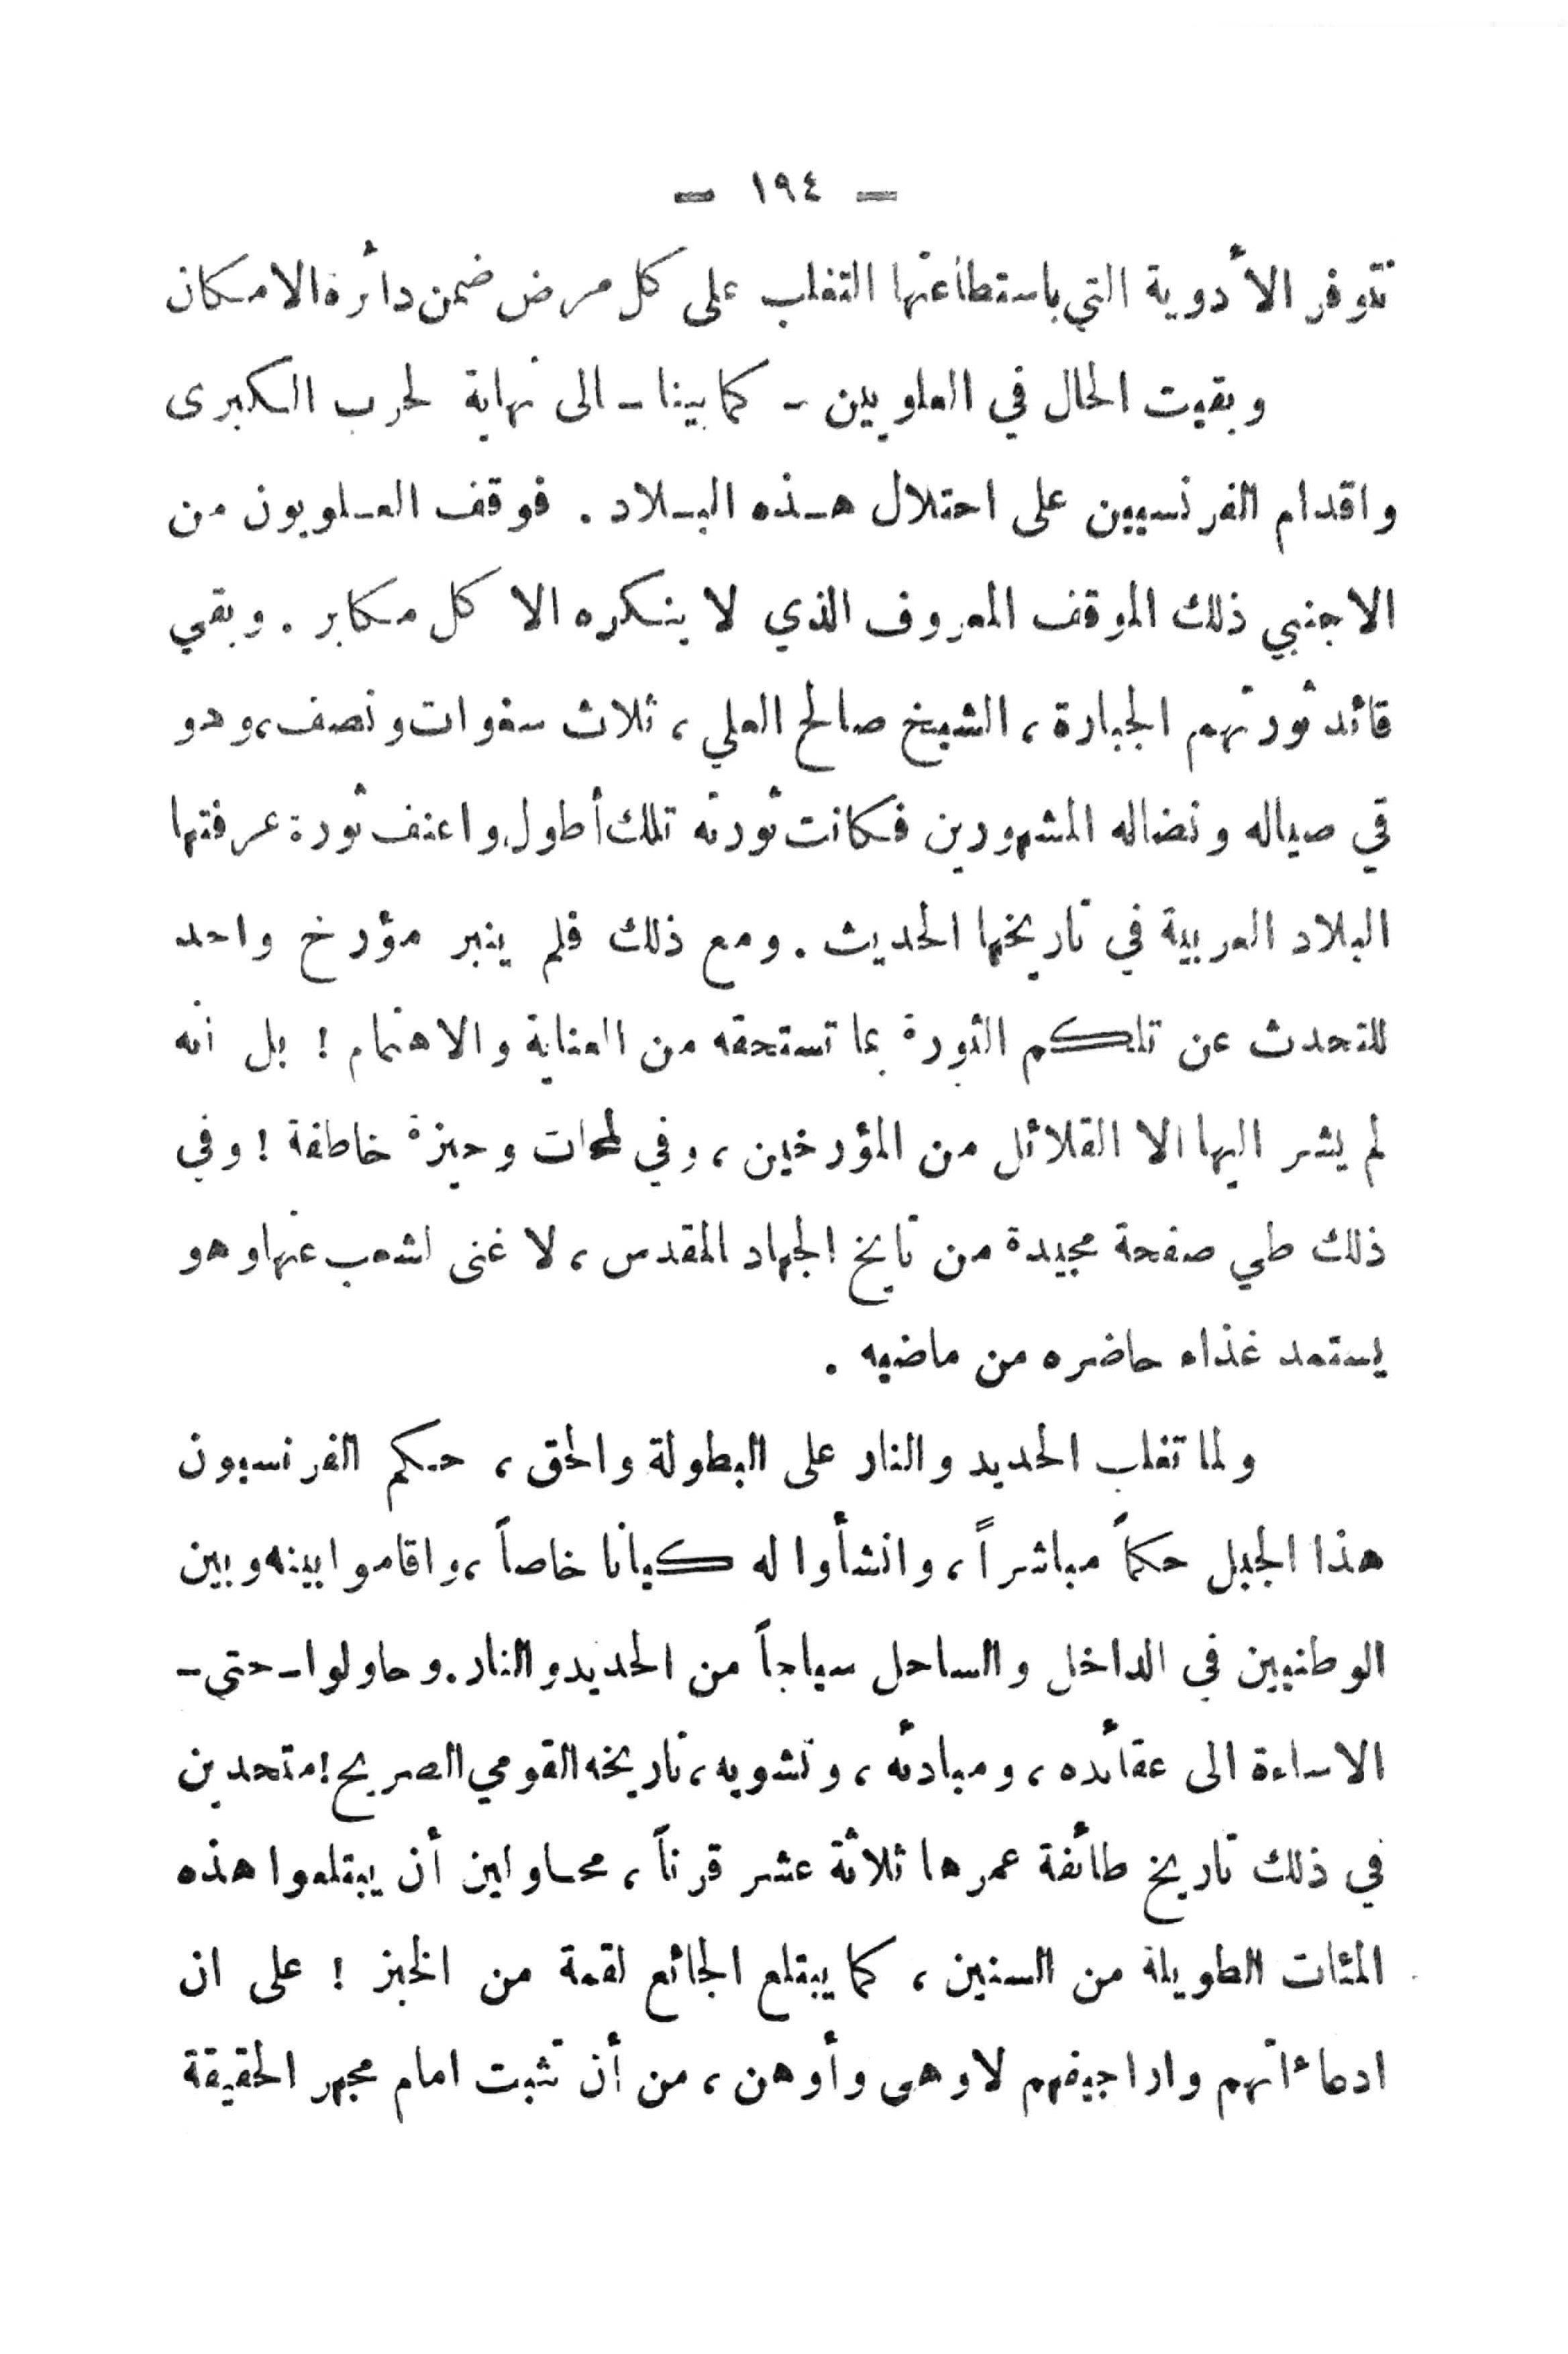 — ١٩٤ —
تتوفر الأدوية التي باستطاعتها التغلب على كل مرض ضمن دائرة الامكان
وبقيت الحال في العلويين - كما بينا - الى نهاية لحرب الكبرى
واقدام الفرنسيين على احتلال هـذه البـلاد . فوقف العـلويون من
الاجنبي ذلك الموقف المعروف الذي لا ينكره الا كل مكابر . وبقي
قائد ثورتهم الجبارة ، الشيخ صالح العلي ، ثلاث سنوات ونصف ، وهو
في صياله ونضاله المشهورين فكانت ثورته تلك أطول واعنف ثورة عرفتها
البلاد العربية في تاريخها الحديث . ومع ذلك فلم ينبر مؤرخ واحد
للتحدث عن تلكم الثورة بما تستحقه من العناية والاهتمام ! بل انه
لم يشر اليها الا القلائل من المؤرخين ، وفي لمحات وجيزة خاطفة ! وفي
ذلك طي صفحة مجيدة من تايخ الجهاد المقدس ، لا غنى لشعب عنها وهو
يستمد غذاء حاضره من ماضيه .
ولما تغلب الحديد والنار على البطولة والحق ، حكم الفرنسيون
هذا الجبل حكماً مباشراً ، وانشأوا له كيانا خاصاً ، واقاموا بينه وبين
الوطنيين في الداخل والساحل سياجاً من الحديد والنار . وحاولوا - حتى -
الاساءة الى عقائده ، ومبادئه ، وتشويه ، تاريخه القومي الصريح ! متحدين
في ذلك تاريخ طائفة عمرها ثلاثة عشر قرناً ، محـاولين أن يبتلعوا هذه
المئات الطويلة من السنين ، كما يبتلع الجائع لقمة من الخبز ! على ان
ادعاءاتهم واراجيفهم لاوهى وأوهن ، من أن تثبت امام مجهر الحقيقة